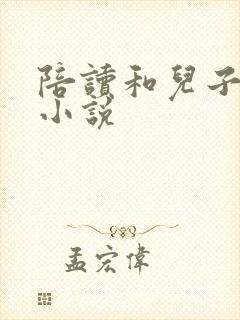 陪讀和兒子
小說
孟宏偉